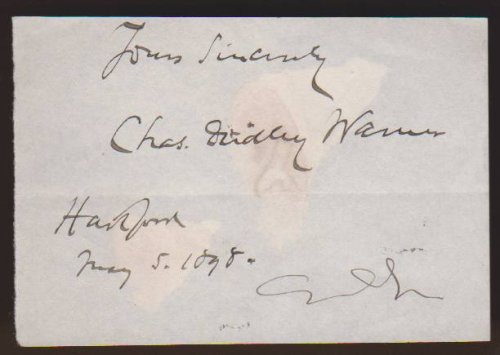 Yours Sincerely
Chas. Dudley Warner
Hartford
May 5. 1898.